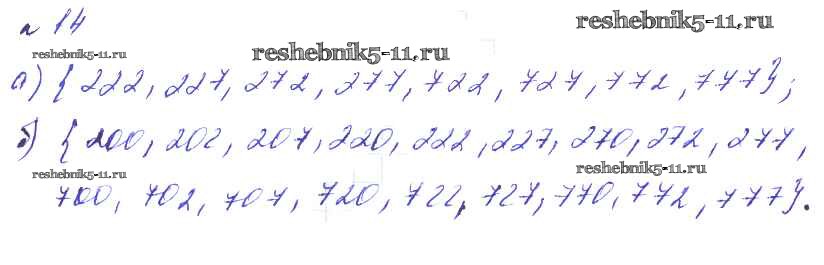 № 14
reshebnik5-11.ru
reshebnik5-11.ru
reshebnik5-11.ru
а) {222, 227, 272, 277, 722, 727, 772, 777};
б) {200, 202, 207, 220, 222, 227, 270, 272, 277,
reshebnik5-11.ru
reshebnik5-11.ru
700, 702, 707, 720, 722, 727, 770, 772, 777}.